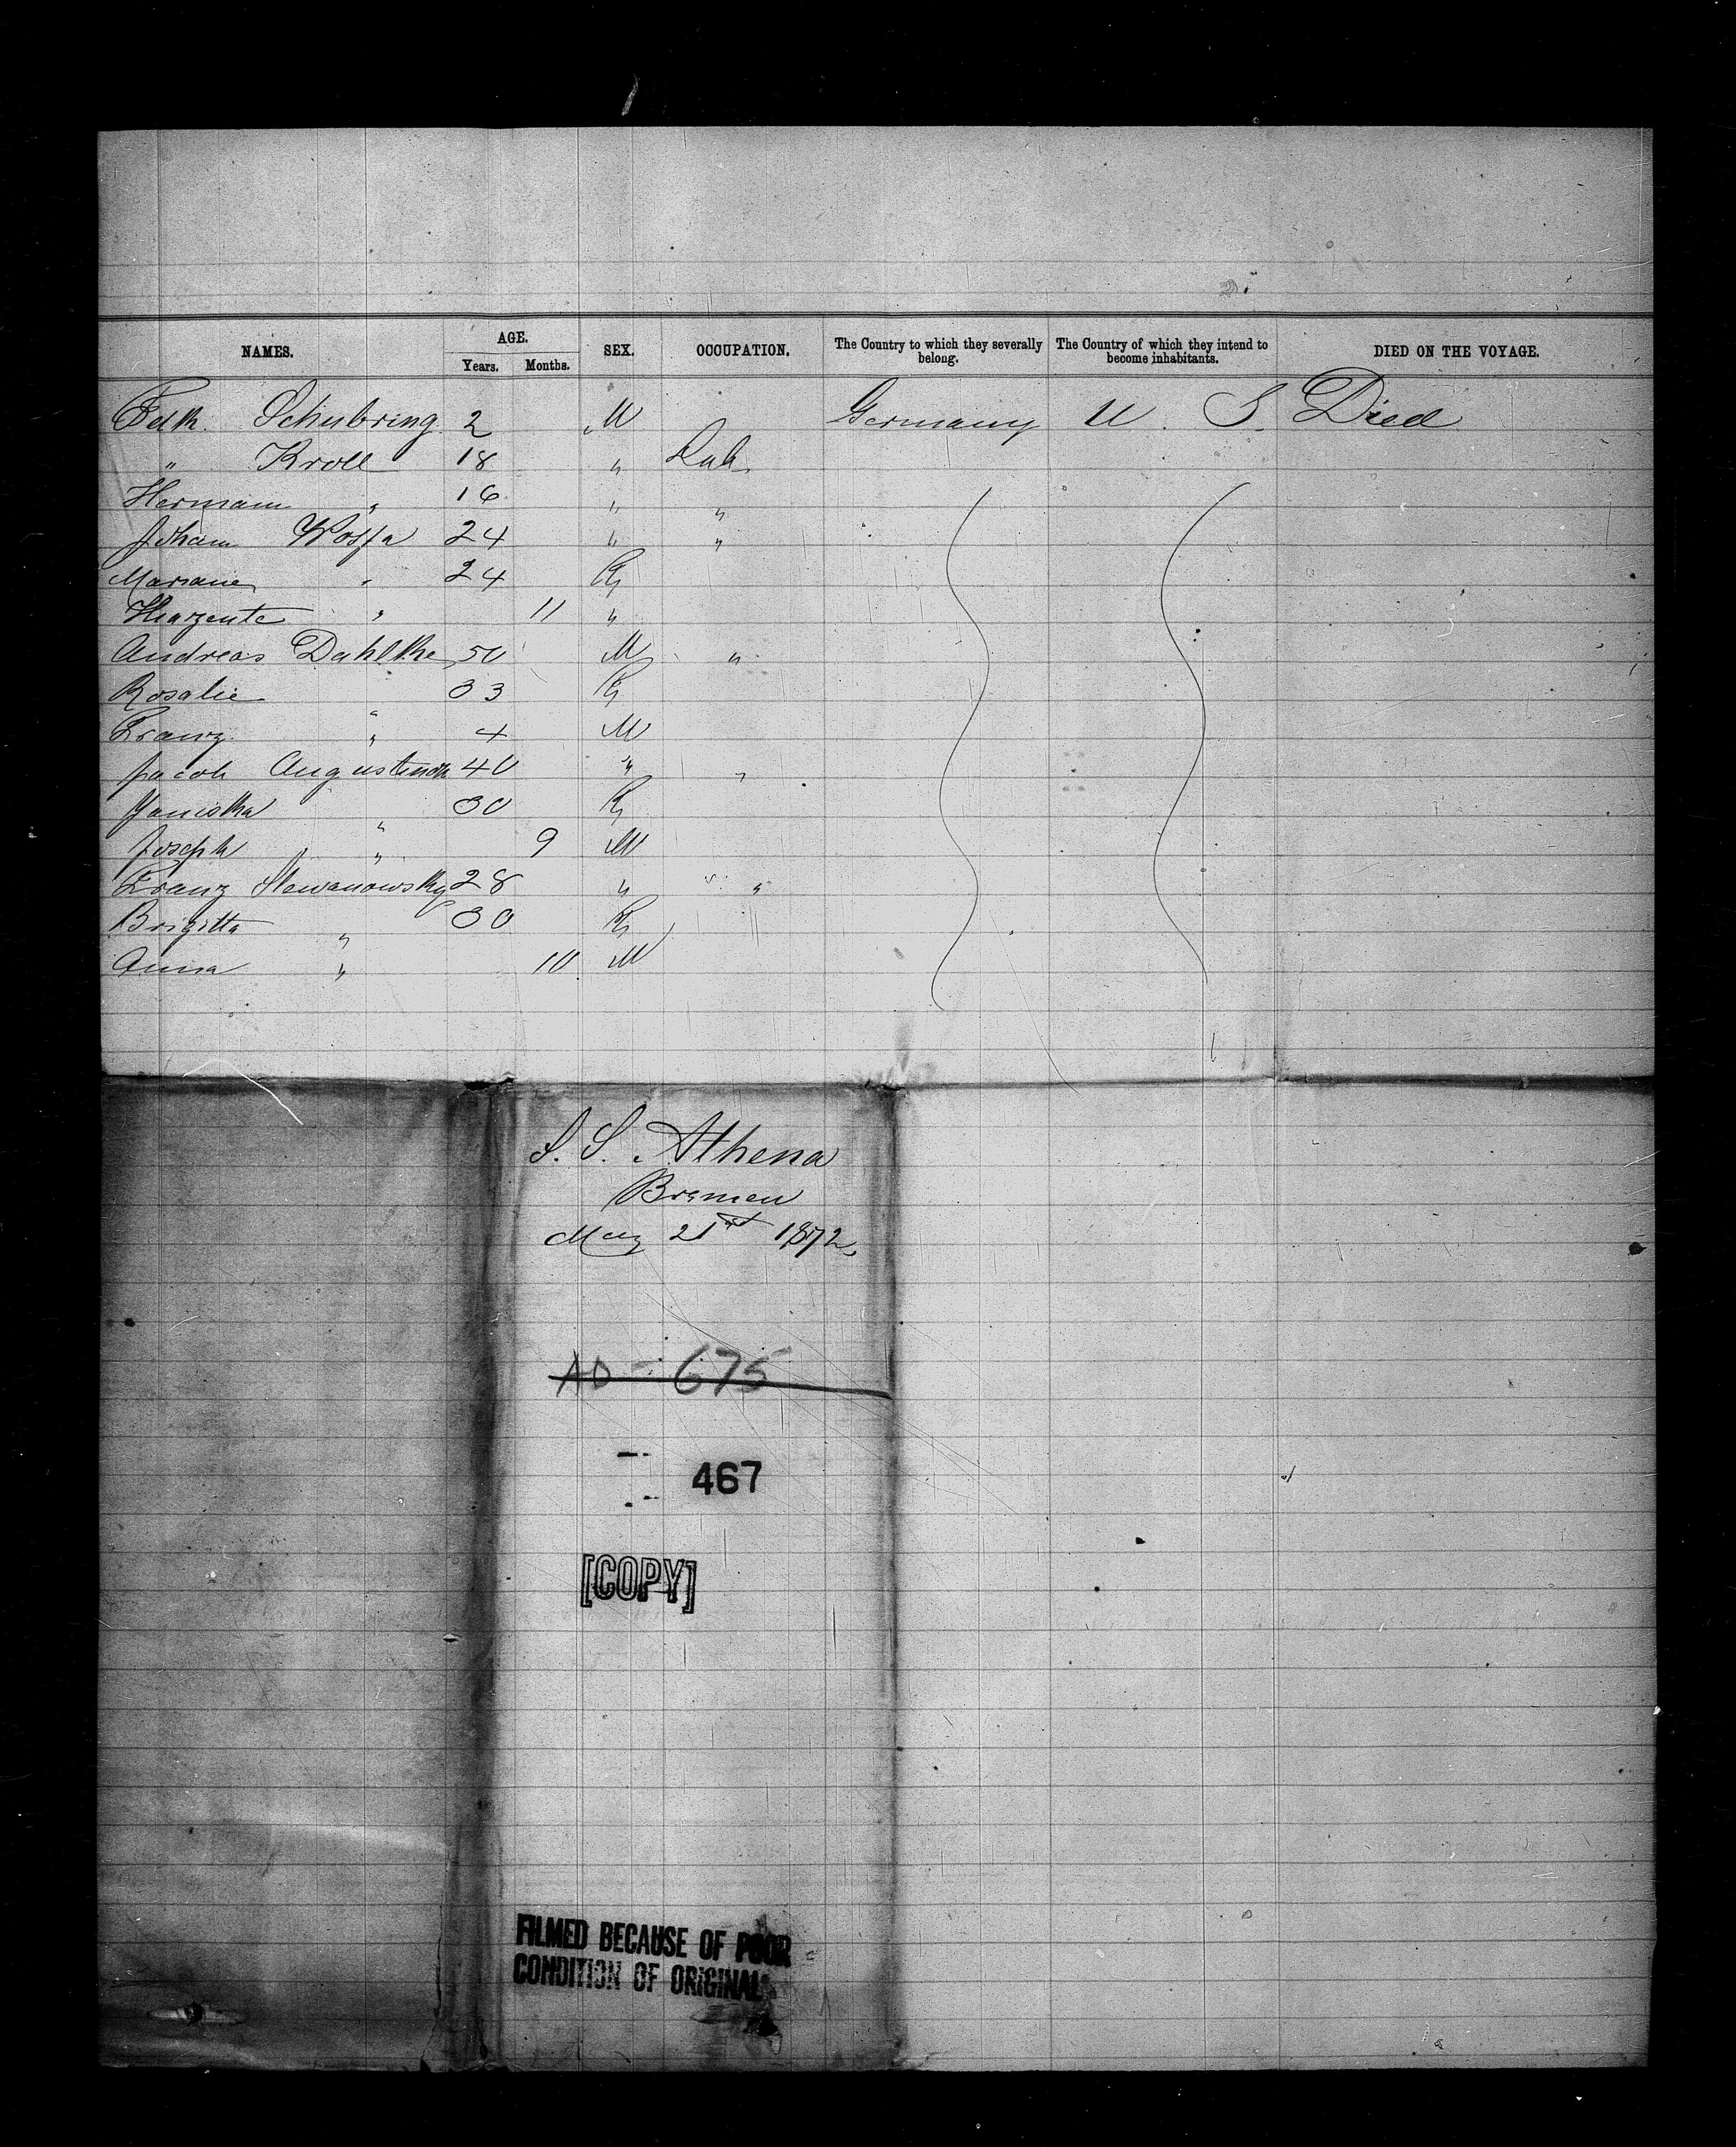 NAMES. AGE. SEX. OCCUPATION. The Country to which they severally belong. The Country of which they intend to become inhabitants. DIED ON THE VOYAGE.
Years. Months.
Fedk. Schubring 2 M Germany U. S. Died
" Kroll 18 " Lab.
Hermann " 16 " "
Johann Wossa 24 " "
Mariane " 24 F
" 11 "
Andreas Dahlke 50 M "
Rosalie " 33 F
Franz " 4 M
Jacob 40 " "
" 30 F
Joseph " 9 M
Franz 28 " "
Brigitta " 30 F
Anna " 10 M
S. S. Athena
Bremen
May 21st 1872
AD - 675
467
[COPY]
FILMED BECAUSE OF POOR
CONDITION OF ORIGINAL